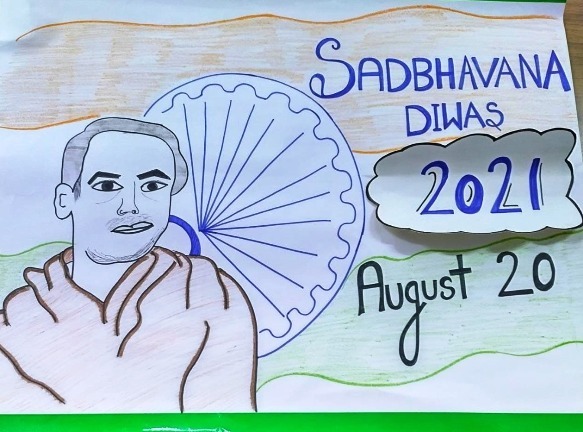 SADBHAVANA
DIWAS
2021
August 20